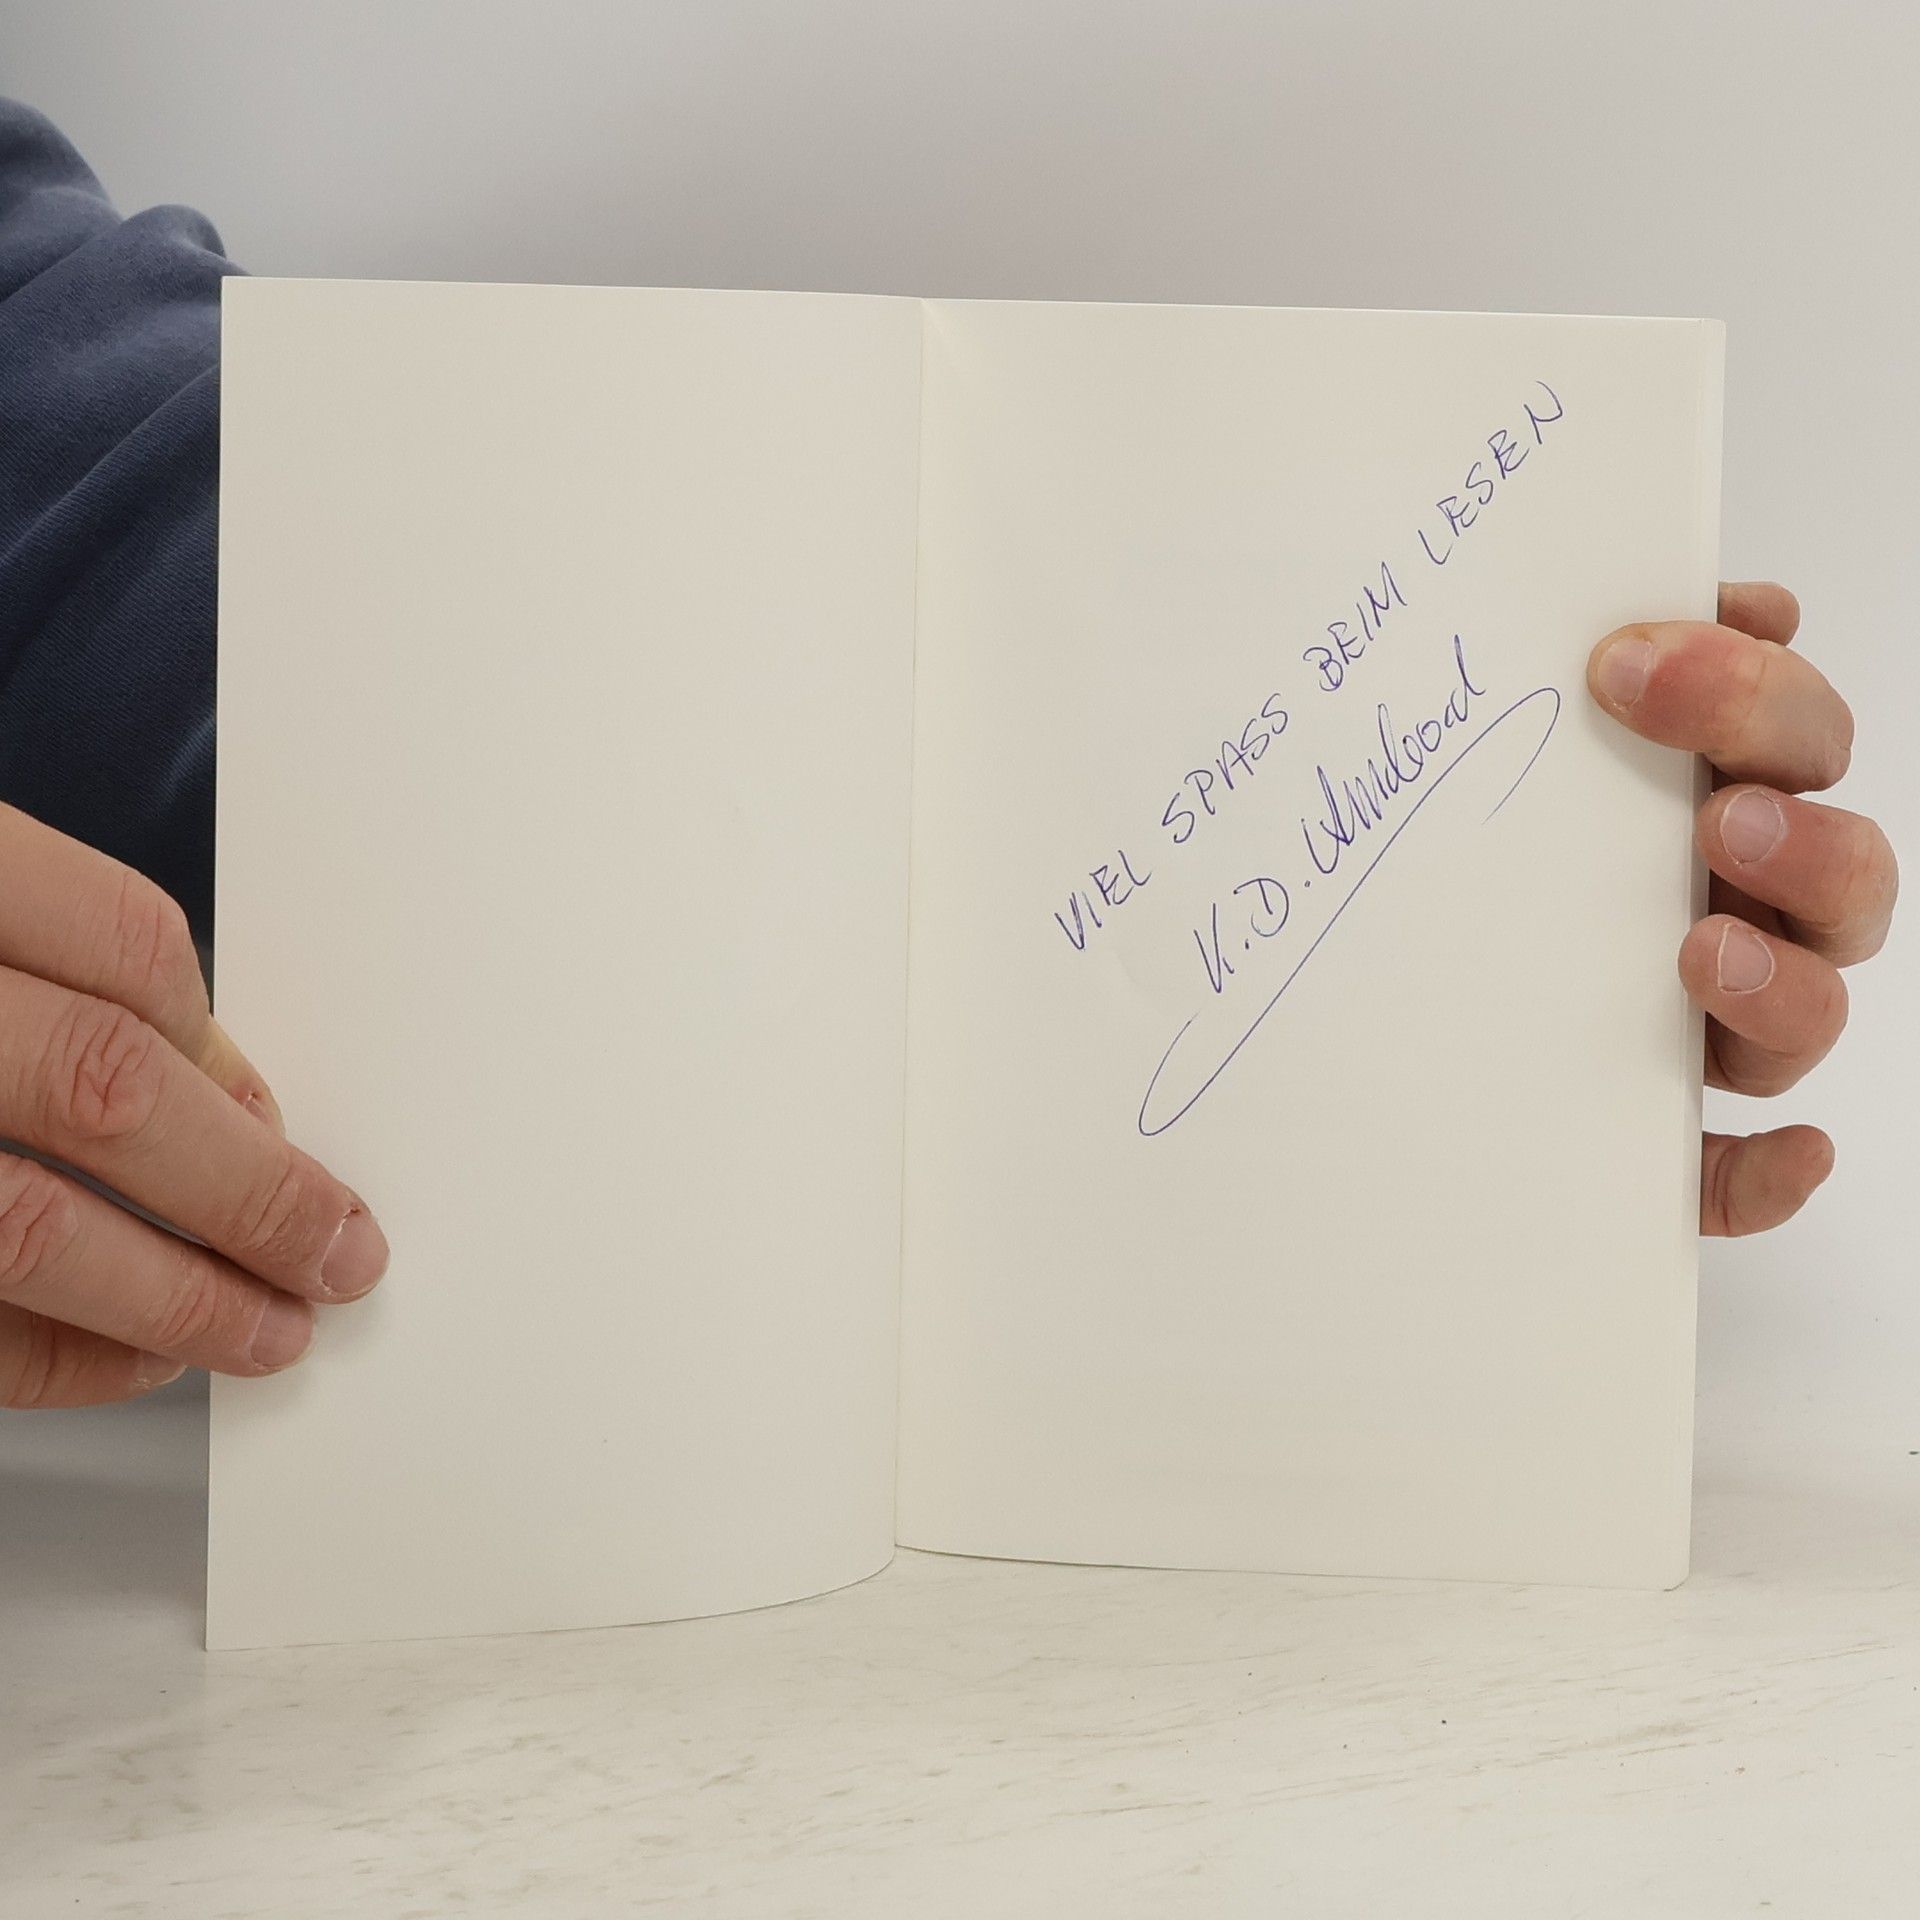 VIEL SPASS BEIM LESEN
K.D.